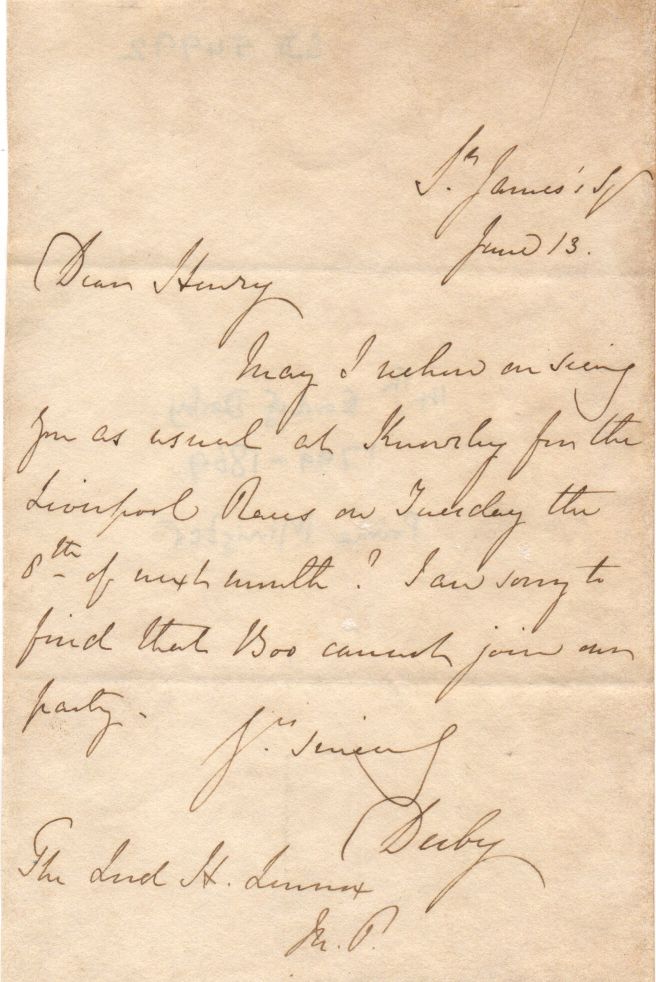 St. James' Sq
June 13.
Dear Henry
May I reckon on seeing
you as usual at Knowsley for the
Liverpool Races on Tuesday the
8th of next month? I am sorry to
find that Boo cannot join our
party.
Yrs sincerely
Derby
The Lord H. Lennox
M.P.